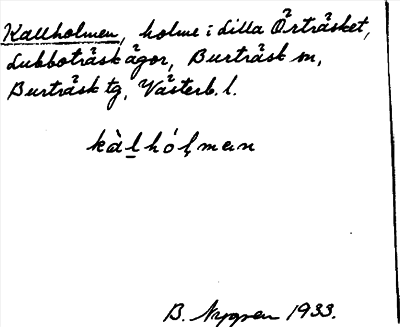 Kallholmen, holme i Lilla Örträsket,
Lubboträsk ägor, Burträsk sn,
Burträsk tg, Västerb. l.
kàl̲hóļmen
B. Nygren 1933.